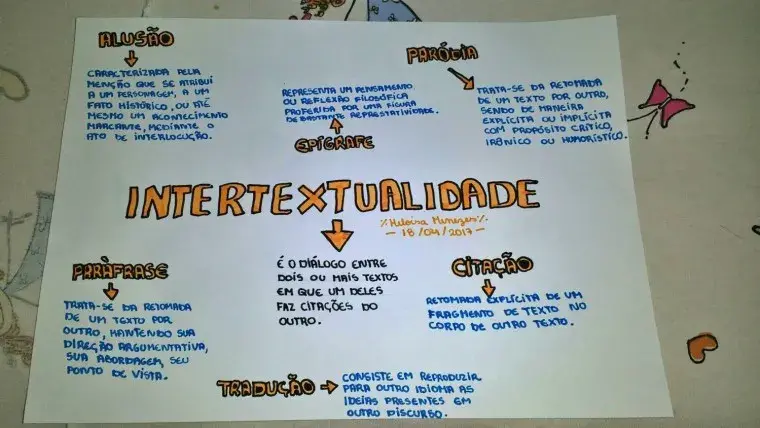 ALUSÃO
CARACTERIZADA PELA
MENÇÃO QUE SE ATRIBUI
A UM PERSONAGEM, A UM
FATO HISTÓRICO, OU ATÉ
MESMO UM ACONTECIMENTO
MARCANTE, MEDIANTE O
ATO DE INTERLOCUÇÃO.
REPRESENTA UM PENSAMENTO
OU REFLEXÃO FILOSÓFICA
PROFERIDA POR UMA FIGURA
DE BASTANTE REPRESTATIVIDADE.
EPÍGRAFE
PARÓDIA
TRATA-SE DA RETOMADA
DE UM TEXTO POR OUTRO,
SENDO DE MANEIRA
EXPLÍCITA OU IMPLÍCITA
COM PROPÓSITO CRÍTICO,
IRÔNICO OU HUMORÍSTICO.
INTERTEXTUALIDADE
Heloisa Menezes
- 18/04/2017 -
É O DIÁLOGO ENTRE
DOIS OU MAIS TEXTOS
EM QUE UM DELES
FAZ CITAÇÕES DO
OUTRO.
PARÀFRASE
TRATA-SE DA RETOMADA
DE UM TEXTO POR
OUTRO, MANTENDO SUA
DIREÇÃO ARGUMENTATIVA,
SUA ABORDAGEM, SEU
PONTO DE VISTA.
CITAÇÃO
RETOMADA EXPLÍCITA DE UM
FRAGMENTO DE TEXTO NO
CORPO DE OUTRO TEXTO.
TRADUÇÃO
CONSISTE EM REPRODUZIR
PARA OUTRO IDIOMA AS
IDEIAS PRESENTES EM
OUTRO DISCURSO.